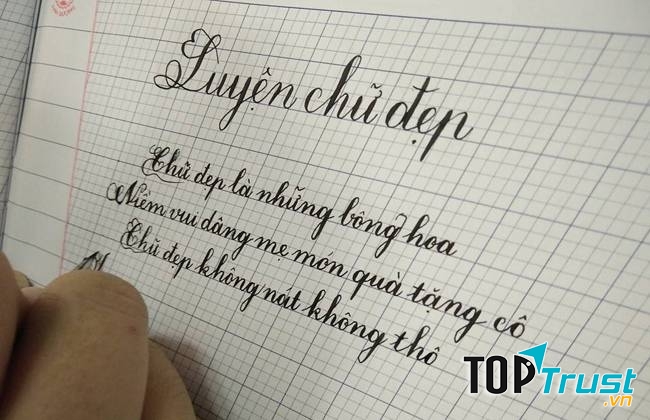 Luyện chữ đẹp
Chữ đẹp là những bông hoa
Niềm vui dâng mẹ mon quà tặng cô
Chữ đẹp không nát không thô
TOPTrust.vn